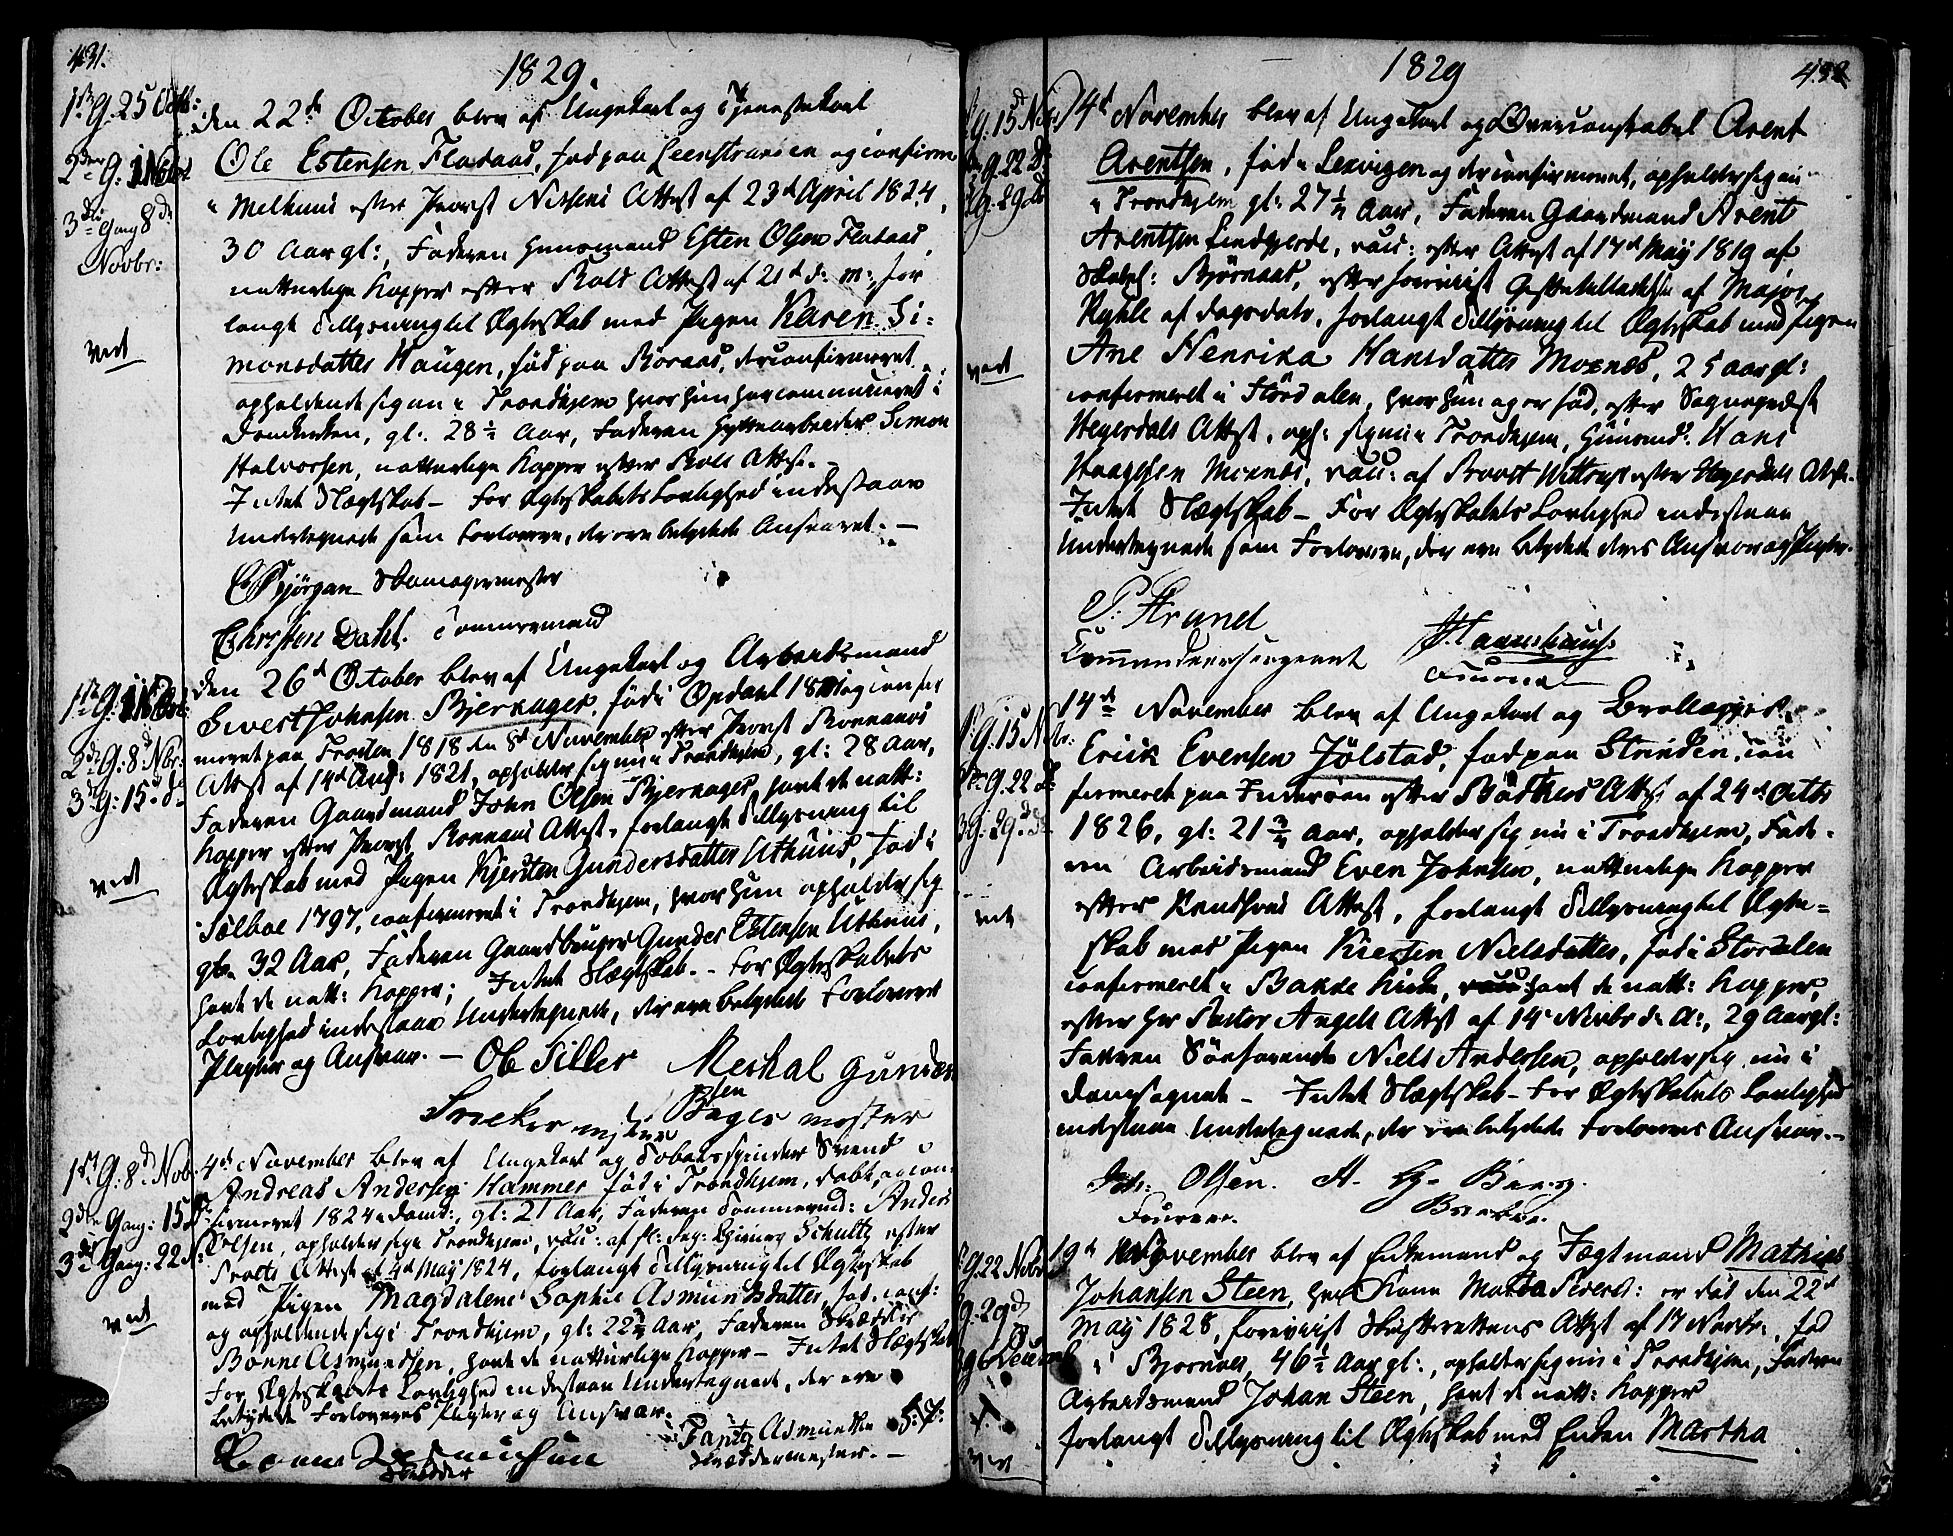 431.
1829.
1ste G. 25 Octb:
2den G: 1 Novbr
3die Gang 8 d.
Novbr:
viet
den 22de October blev af Ungekarl og Tjenestekarl
Ole Estensen Flataas, født paa Leenstranden og confirm
i Melhuus efter Provst Nissens Attest af 23d April 1824,
30 Aar gl:, Faderen Huusmand Esten Olsen Flataas,
natturlige Kopper efter Rolds Attest af 21d d: m:, for
langt Tillysning til Ægteskab med Pigen Karen Si=
monsdatter Haugen, født paa Røraas, der confirmeret,
opholdende sig nu i Trondhjem hvor hun har communiceret i
Domkirken, gl: 28½ Aar, Faderen Hyttearbeider Simon
Halvorsen, natturlige Kopper efter Rolds Attest. –
Intet Slægtskab – For Ægteskabets Lovlighed indestaae
Undertegnede som Forlovere, der ere bekjendte Ansvaret. –
Spjørgan Skomagermester
Christen Dahl. Tømmermand
1ste G: 1 Nov:
2d G: 8 d Nbr:
3d G: 15 d d
viet
den 26d October blev af Ungekarl og Arbeidsmand
Sivert Johnsen Bjerkager, født i Opdahl og confir
meret paa Trøtten 1818 den 8d November efter Provst Bonnanis
Attest af 14d Aug: 1821, opholder sig nu i Trondhjem, gl: 28 Aar,
Faderen Gaardmand John Olsen Bjerkager, havt de natt:
Kopper efter Provst Bonnanis Attest, forlangt Tillysning til
Ægteskab med Pigen Kjersten Gundersdatter Uthuus, født i
Sælboe 1797, confirmeret i Trondhjem, hvor hun opholder sig
gl: 32 Aar, Faderen Gaardbruger Gunder Estensen Uthuus,
havt de natt: Kopper; Intet Slægtskab. – For Ægteskabets
Lovlighed indestaae Undertegnede, der ere bekjendte Forloveres
Pligter og Ansvar. – Ole Siller Meshal Gunder
sen
Snekermester Bager mester
1ste G: 8d Nov.
2den Gang: 15 d
3die Gang: 22 d:
viet
4de November blev af Ungekarl og Tobaksspinder Svend
Andreas Andersen Hammer født i Trondhjem, døbt, og con
firmeret 1824 i Domk:, gl: 21 Aar, Faderen Tømmermd: Anders
Olsen, opholder sig i Trondhjem, vacc: af Schultz efter
Attest af 4d May 1824, forlangt Tillysning til Ægteskab
med Pigen Magdalene Sophie Asmundsdatter, fød, conf:
og opholdende sig i Trondhjem, gl: 22¾ Aar, Faderen Skrædder
Bonne Asmundsen, havt de natturlige Kopper – Intet Slægtskab
For Ægteskabets Lovlighed indestaae Undertegnede, der ere
bekjendte Forloveres Pligter og Ansvar.
Asmundsen
Skrædder
Asmundsen
Skræddermester. –
1829
432
G. 15d Nov:
G. 22 d
3 G. 29 d
viet
4d November blev af Ungekarl og Overconstabel Arent
Arentsen, født i Lexvigen og der confirmeret, opholder sig nu
i Trondhjem gl: 27½ Aar, Faderen Gaardmand Arent
Arentsen Lindgierde, vacc: efter Attest af 17d May 1819 af
Bjørnaas, efter foreviist Giftetilladelse af Major
Ryhle af Dagsdato, forlangt Tillysning til Ægteskab med Pigen
Ane Henrika Hansdatter Moxnes, 25 Aar gl:
confirmeret i Størdalen, hvor hun og er fød, efter Sognepræst
Heyerdals Attest, oph: sig nu i Trondhjem, Huusmd: Hans
Haagesen Moxnes, vacc: af Provst Wittrup efter Heyerdals Attest.
Intet Slægtskab – For Ægteskabets Lovlighed indestaae
Undertegnede som Forlovere, der ere bekjendte deres Ansvar og Pligter.
P. Strand
Commandeersergeant
Fourer
1ste G. 15 Nbr:
2den G. 22 d
3 G. 29 d d
viet
14de November blev af Ungekarl og
Erick Evensen Jølstad, fød paa Strinden, con
firmeret paa Inderøen efter Attest af 24de Octb
1826, gl: 21¾ Aar, opholder sig nu i Trondhjem, Fade=
ren Arbeidsmand Even Johnsen, natturlige Kopper
efter Attest, forlangt Tillysning til Ægte=
skab med Pigen Kiersten Nielsdatter, fød i Størdalen
confirmeret i Bakke Kirke, havt de natt: Kopper,
efter Hr Pastor Angels Attest af 14 Novbr d: A:, 29 Aar gl:
Faderen Søefarende Niels Andersen, opholder sig nu i
Domsognet – Intet Slægtskab – For Ægteskabets Lovlighed
indestaae Undertegnede, der ere bekjendte Forloveres Ansvar. –
Joh: Olsen. A. G. Berg.
Fourer.
G. 22 Nobr
G. 29 d
3 G 6 Decemb
19d November blev af Enkemand og Jægtmand Mathias
Johansen Steen, hvis Kone Martha Siversd: er død den 22d
May 1828, foreviist Skifterettens Attest af 17 Novbr, fød
i Bjørnør, 46½ Aar gl:, opholder sig nu i Trondhjem, Faderen
Arbeidsmand Johan Steen, havt de natt: Kopper
forlangt Tillysning til Ægteskab med Enken Martha